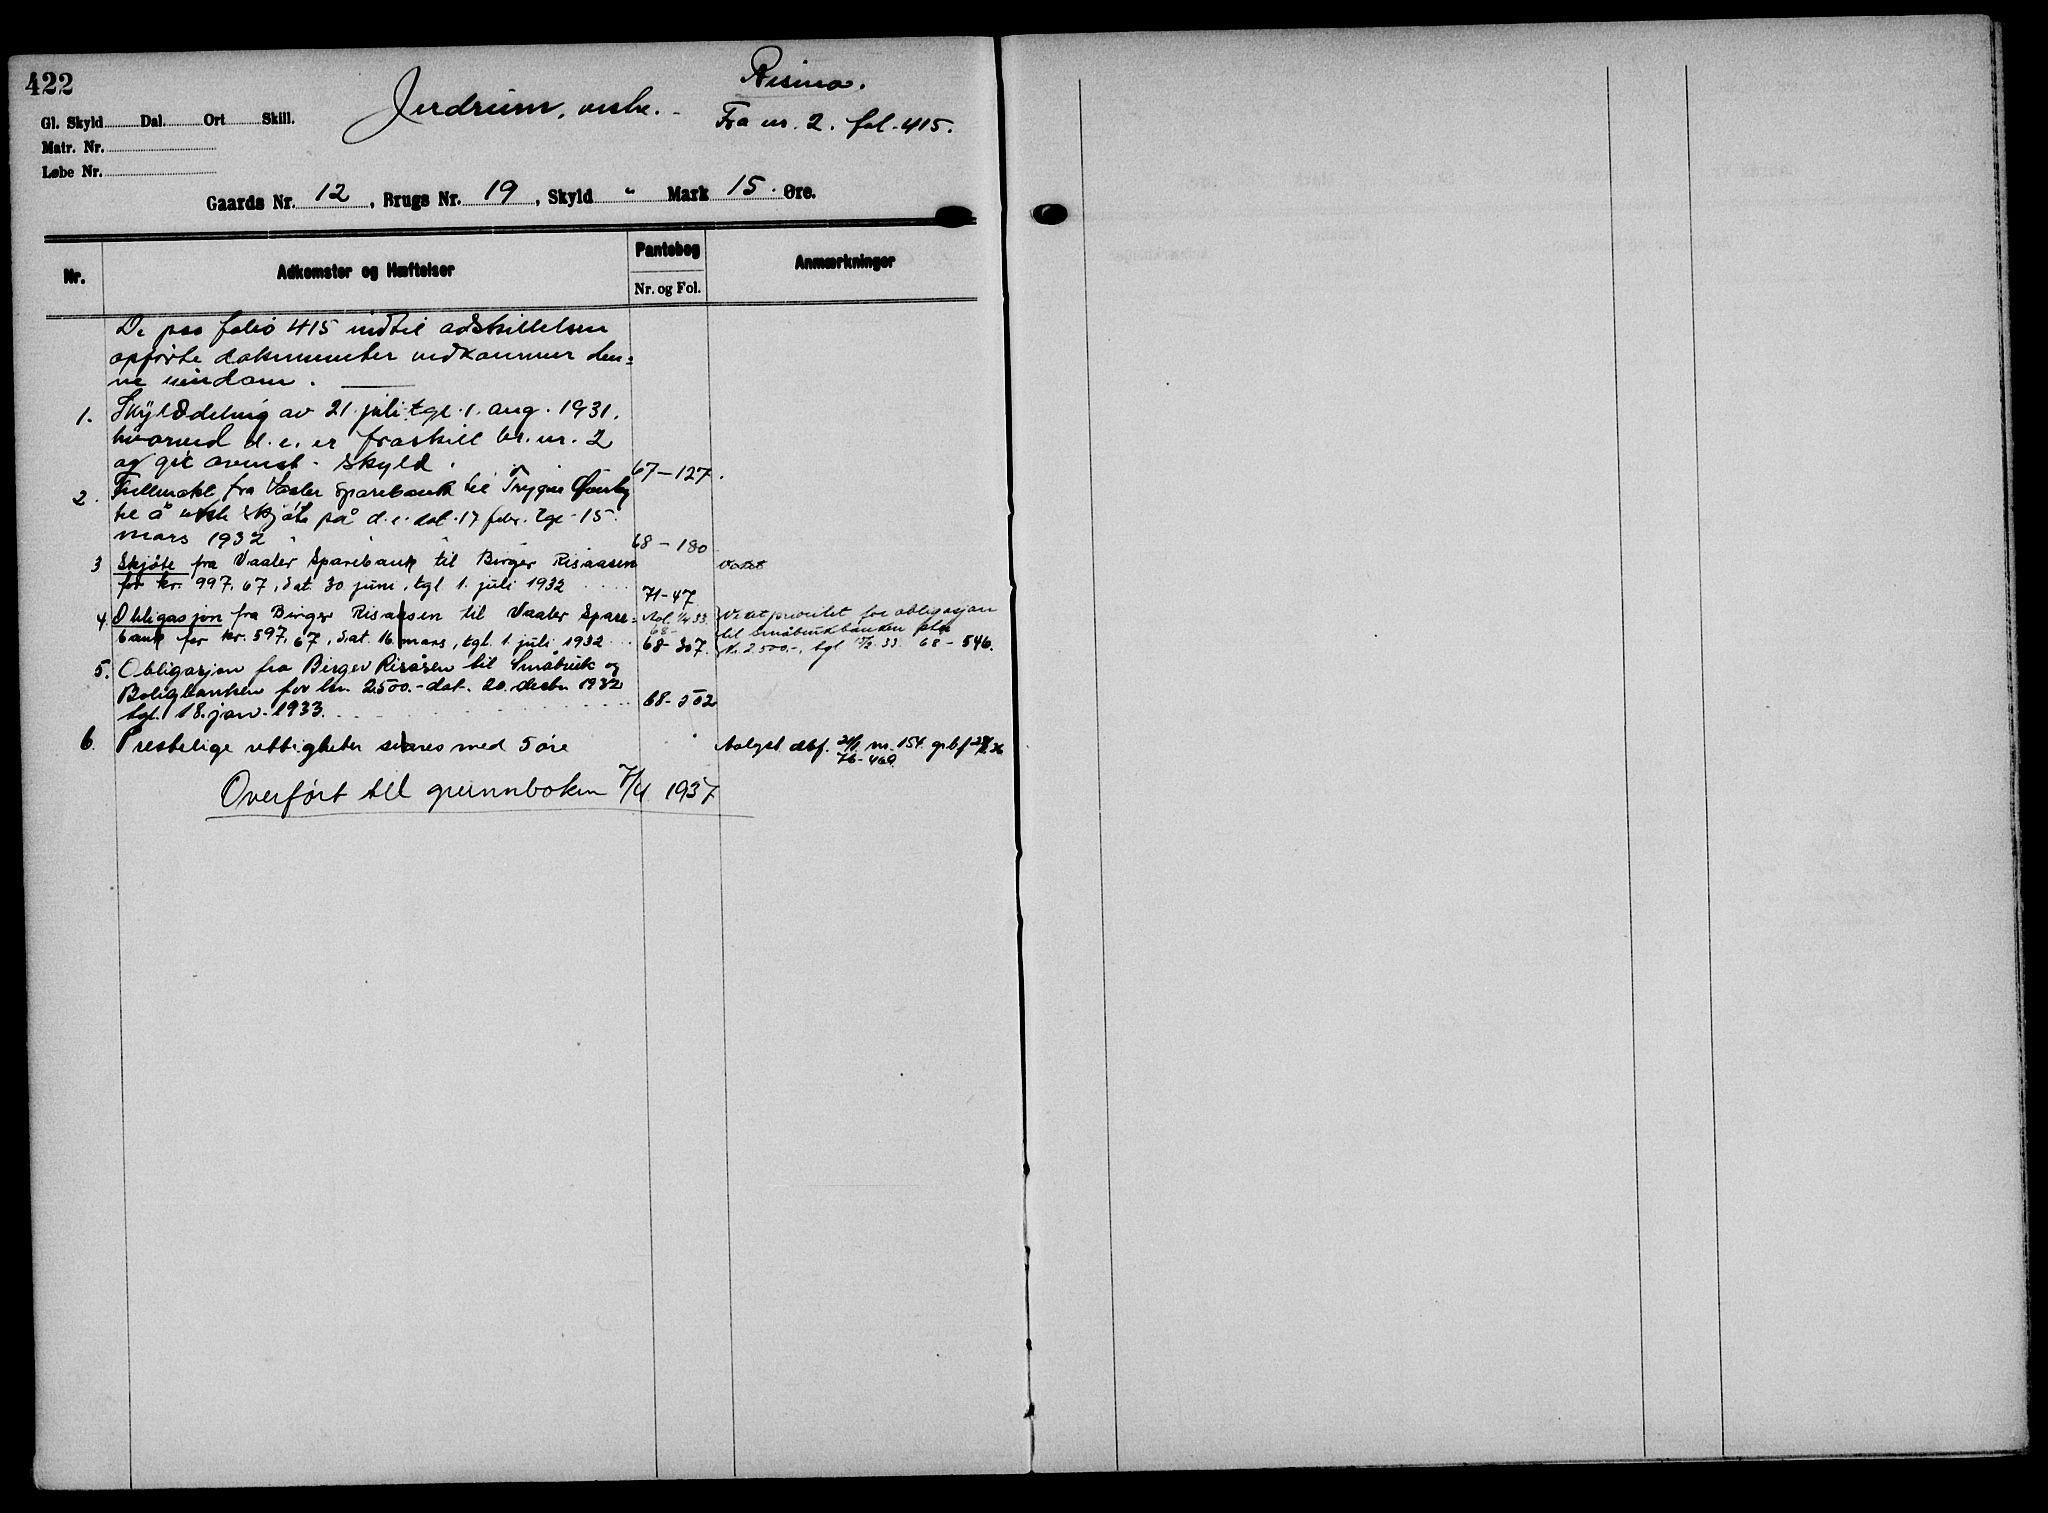 422
Gl. Skyld Dal. Ort Skill.
Matr. Nr.
Løbe Nr.
Jerdrum, vestre.
Rismo.
Fra nr. 2. fol. 415.
Gaards Nr. 12, Brugs Nr. 19, Skyld " Mark 15. Øre.
Nr.
Adkomster og Hæftelser
Pantebog
Nr. og Fol.
Anmærkninger
De paa folio 415 indtil adskillelsen
opførte dokumenter vedkommer den=
ne eiendom.
1. Skylddeling av 21. juli tgl. 1. aug. 1931.
hvorved d. e. er fraskilt br. nr. 2
og git ovenst. skyld. 67-127.
2. Fullmakt fra Vaaler Sparebank til Trygve
til å utste skjøte på d. e. dat. 17 febr. tgl. 15.
mars 1932 68-180
3 Skjøte fra Vaaler Sparebank til Birger Risaasen
for kr. 997,67, dat. 30 juni, tgl. 1. juli 1932 71-47
4. Obligasjon fra Birger Risaasen til Vaaler Spare=
bank for kr. 597,67, dat. 16 mars, tgl. 1. juli 1932 68-307.
Veket prioritet for obligasjon
til småbrukbanken
kr. 2500.-, tgl. 33. 68-546.
5. Obligasjon fra Birger Risåsen til Småbruk og
Boligbanken for kr. 2500.- dat. 20. desbr. 1932
tgl. 18. jan. 1933. 68-502
6. Prestelige rettigheter svares med 5 øre
Avlyst dbf. nr. 154.
76-460
Overført til grunnboken 7/4 1937